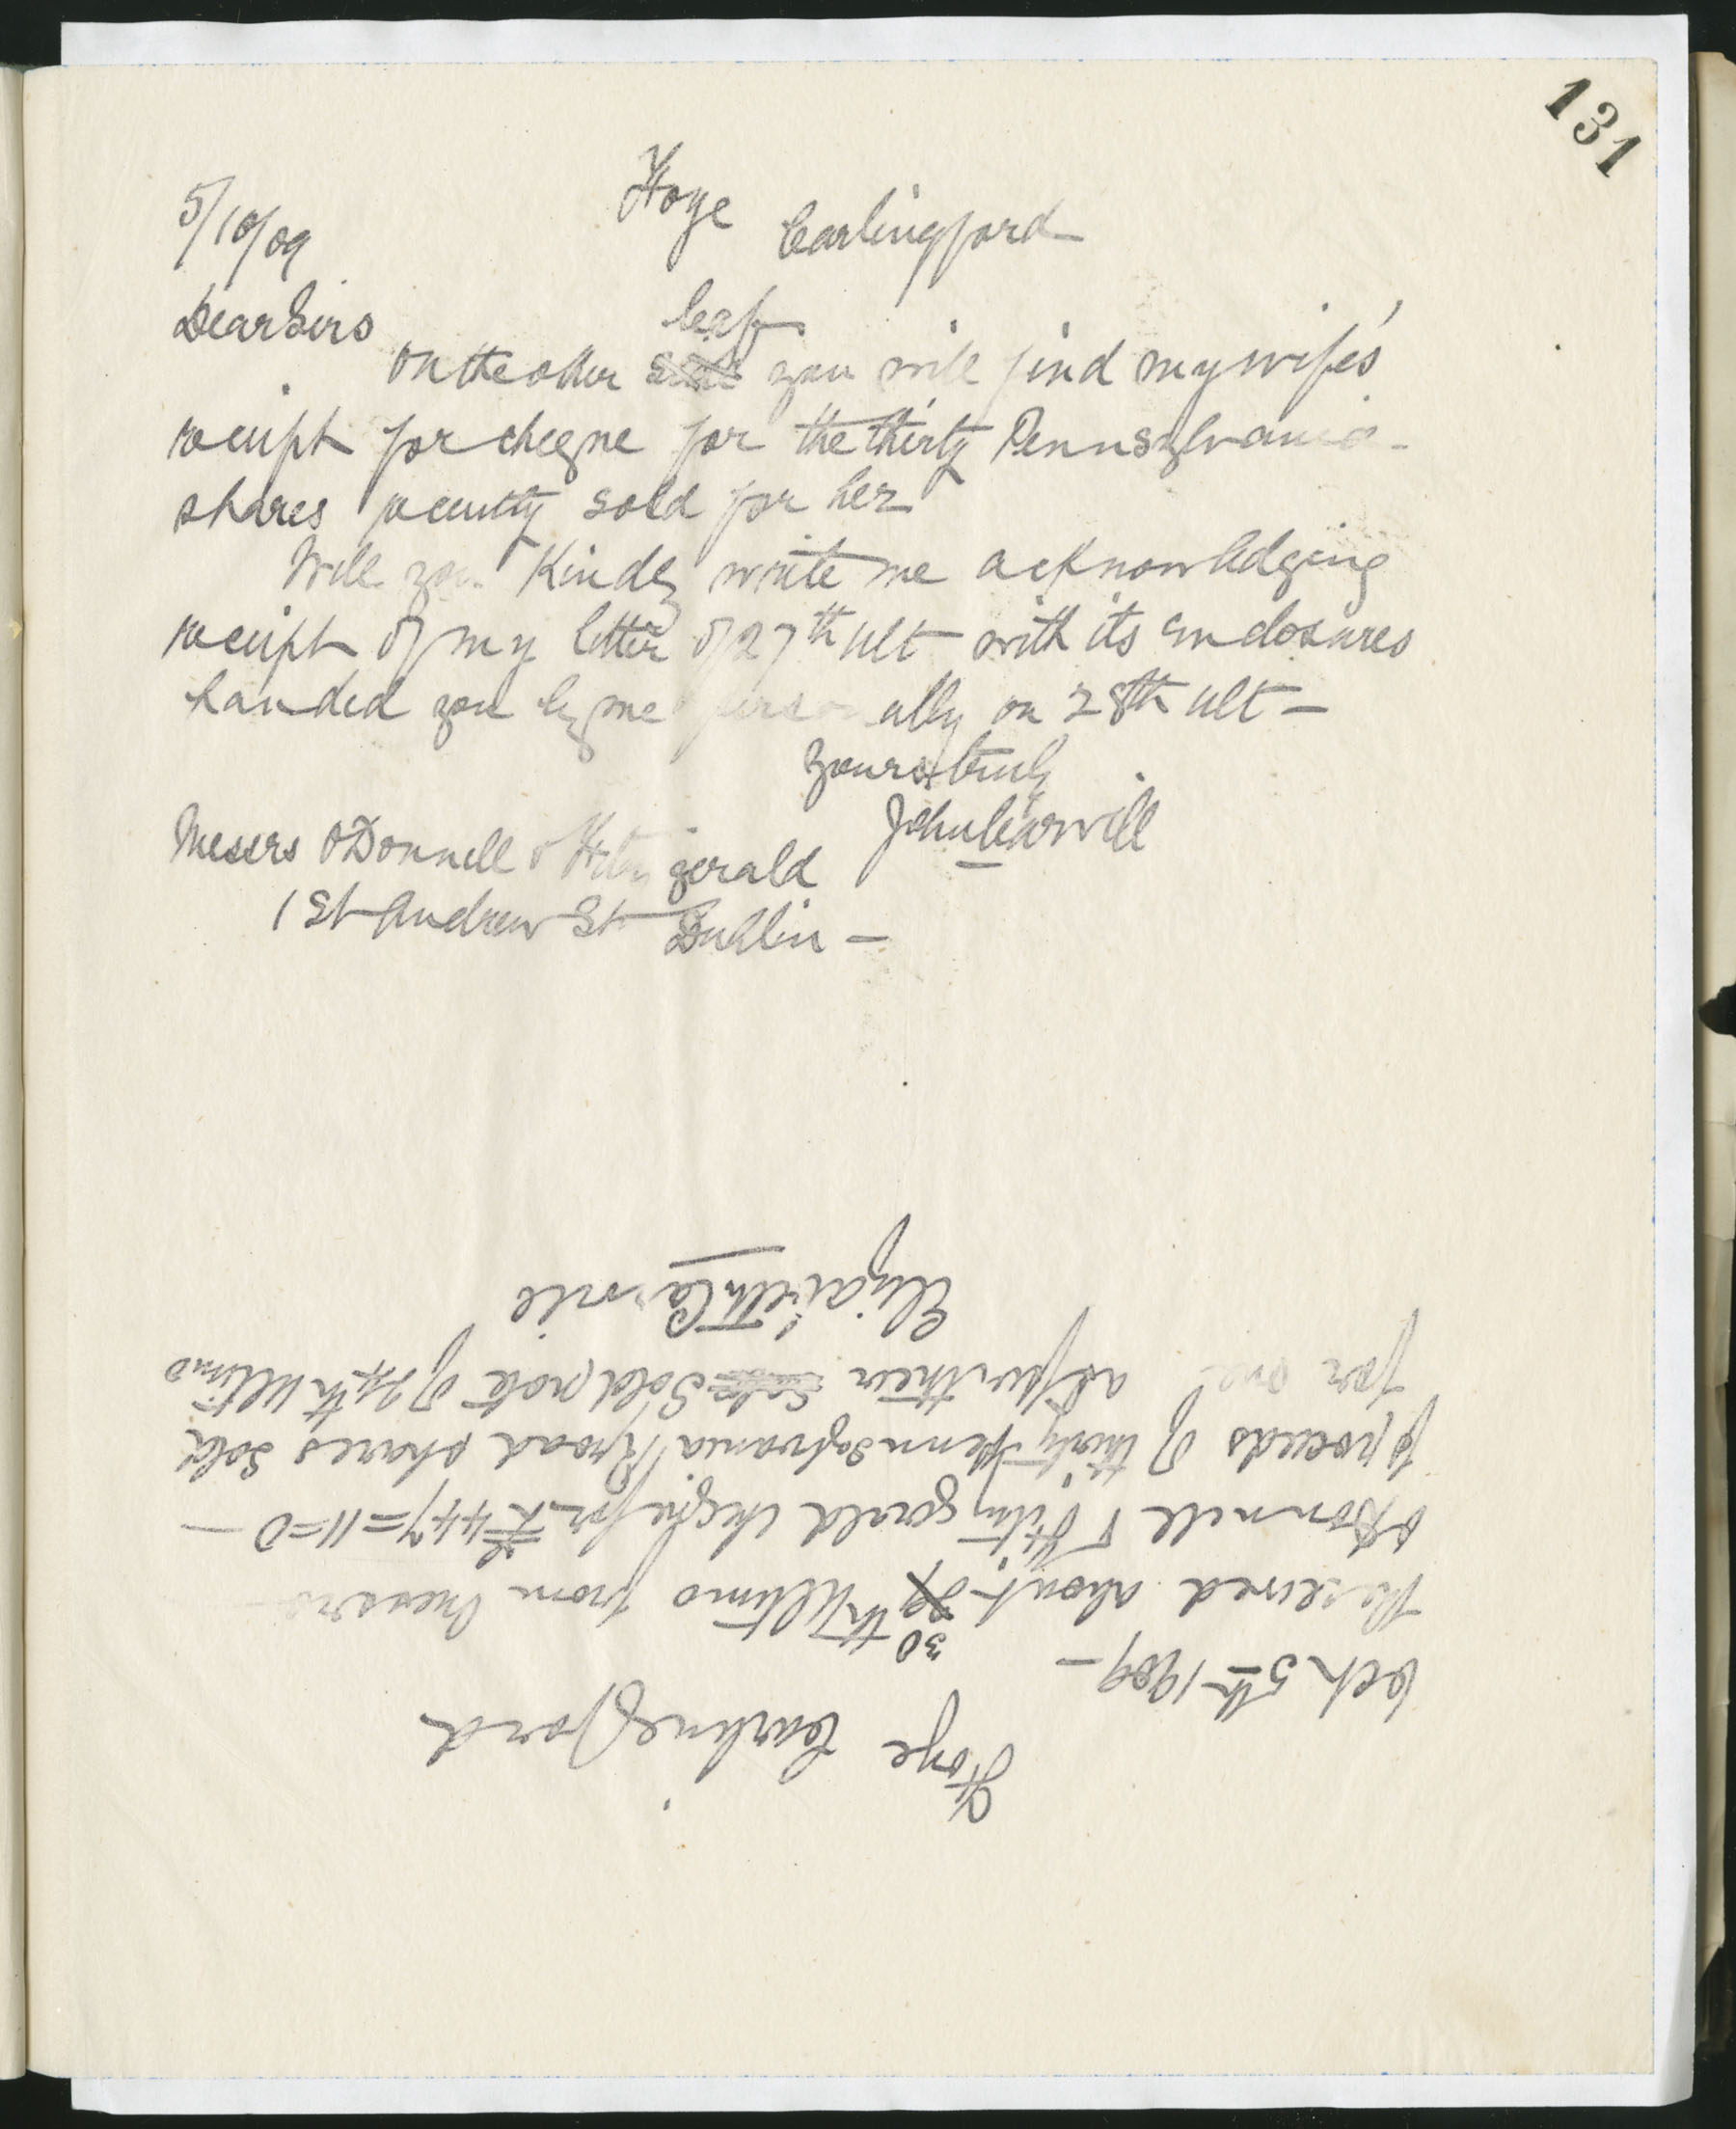 131
Foye Carlingford
5/10/09
Dear Sirs
leaf
On the other side you will find my wife's
receipt for cheque for the thirty Pennsylvania
shares recently sold for her
Will you Kindly write me acknowledging
receipt of my letter of 27th ult with its enclosures
handed you by me personally on 28th ult –
Yours truly
John Carvill
Messrs O'Donnell & Fitzgerald
1 St Andrew St Dublin –
Foye Carlingford
Oct 5th 1909 –
30
Received about 29th Ultimo from Messrs
O'Donnell & Fitzgerald cheque for £447=11=0 –
proceeds of thirty Pennsylvania Rroad shares sold
for me as per their Sold note of 24th Ultimo
Elizabeth Carvill